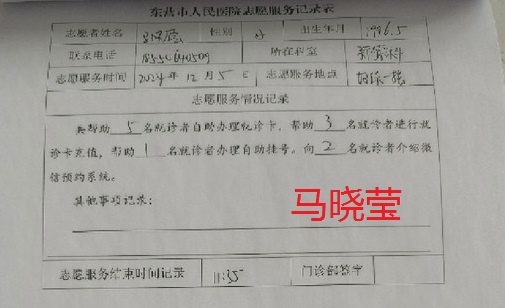 东营市人民医院志愿服务记录表
志愿者姓名 性别 女 出生年月 1986.5
联系电话 所在科室
志愿服务时间 2024年12月5日 志愿服务地点
志愿服务情况记录
共帮助5名就诊者自助办理就诊卡，帮助3名就诊者进行就
诊卡充值，帮助1名就诊者办理自助挂号。向2名就诊者介绍微
信预约系统。
其他事项记录：
马晓莹
志愿服务结束时间记录 11:35 门诊部签字